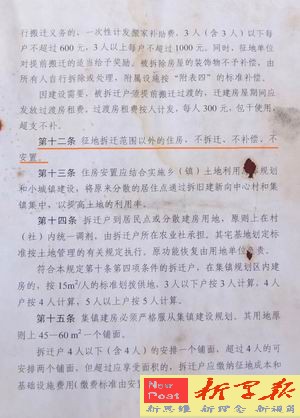 行搬迁义务的，一次性计发搬家补助费，3人（含3人）以下每
户不超过600元，3人以上每户不超过1000元。同时，征地单位
对提前搬迁的适当给予奖励。被拆除房屋的装饰物不予补偿，由
所有人自行拆除或处理，附属设施按“附表四”的标准补偿。
因建设需要，被拆迁户须提前搬迁过渡的，迁建房屋期间应
发放过渡房租费。过渡房租费按人计发，每人300元，包干使用，
超支不补。
第十二条 征地拆迁范围以外的住房，不拆迁、不补偿、不
安置。
第十三条 住房安置应结合实施乡（镇）土地利用
规划
和小城镇建设，将原来分散的居住点通过拆旧建新向中心村和集
镇集中，以提高土地的利用率。
第十四条 拆迁户到居民点或分散建房用地，原则上在村
（社）内统一调剂，由拆迁户所在农业社承担。其宅基地划定标
准按土地管理的有关规定执行。原功能恢复由用地单位
责。
符合本规定第十条第四项条件的拆迁户，在集镇规划区内建
房的，按15m²/人的标准划拨供地，3人以下户按3人计算，4人
户按4人计算，5人以上户按5人计算。
第十五条 集镇建房必须严格服从集镇建设规划。其用地原
则上45—60m²一个铺面。
拆迁户4人以下（含4人）的安排一个铺面，超过4人的可
安排两个铺面，但超过应享受面积的，拆迁户应缴纳征地成本和
基础设施费用(缴费标准由安
New
Post
新学报
新思维 新理念 新视角